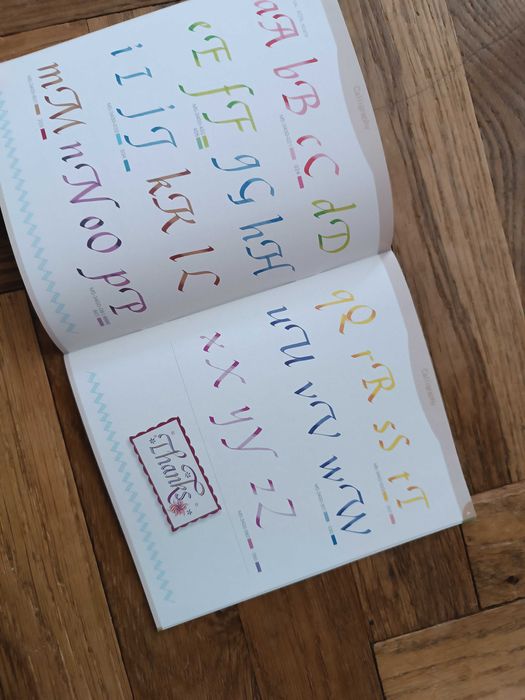 Calligraphy
aA bB cC dD
eE fF gG hH
iI jJ kK lL
mM nN oO pP
Calligraphy
qQ rR sS tT
uU vV wW
xX yY zZ
Thanks